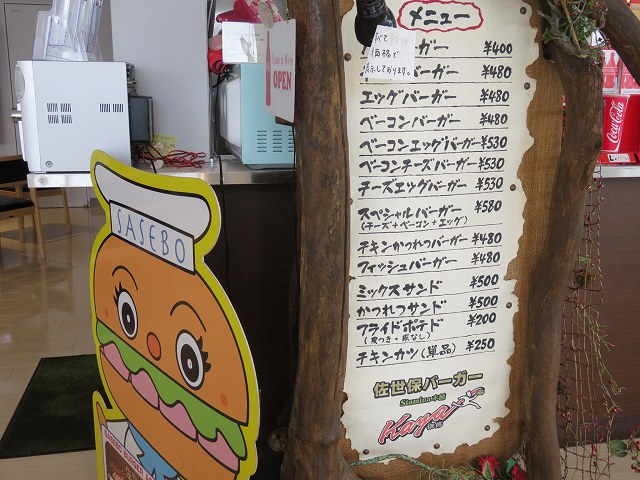 メニュー
バーガー ¥400
バーガー ¥480
価格で
表示しております。
エッグバーガー ¥480
ベーコンバーガー ¥480
ベーコンエッグバーガー ¥530
ベーコンチーズバーガー ¥530
チーズエッグバーガー ¥530
スペシャルバーガー ¥580
(チーズ+ベーコン+エッグ)
チキンかつれつバーガー ¥480
フィッシュバーガー ¥480
ミックスサンド ¥500
かつれつサンド ¥500
フライドポテド ¥200
(皮つき・皮なし)
チキンカツ(単品) ¥250
佐世保バーガー
Stamina本舗
Kaya
OPEN
SASEBO
Coca-Cola